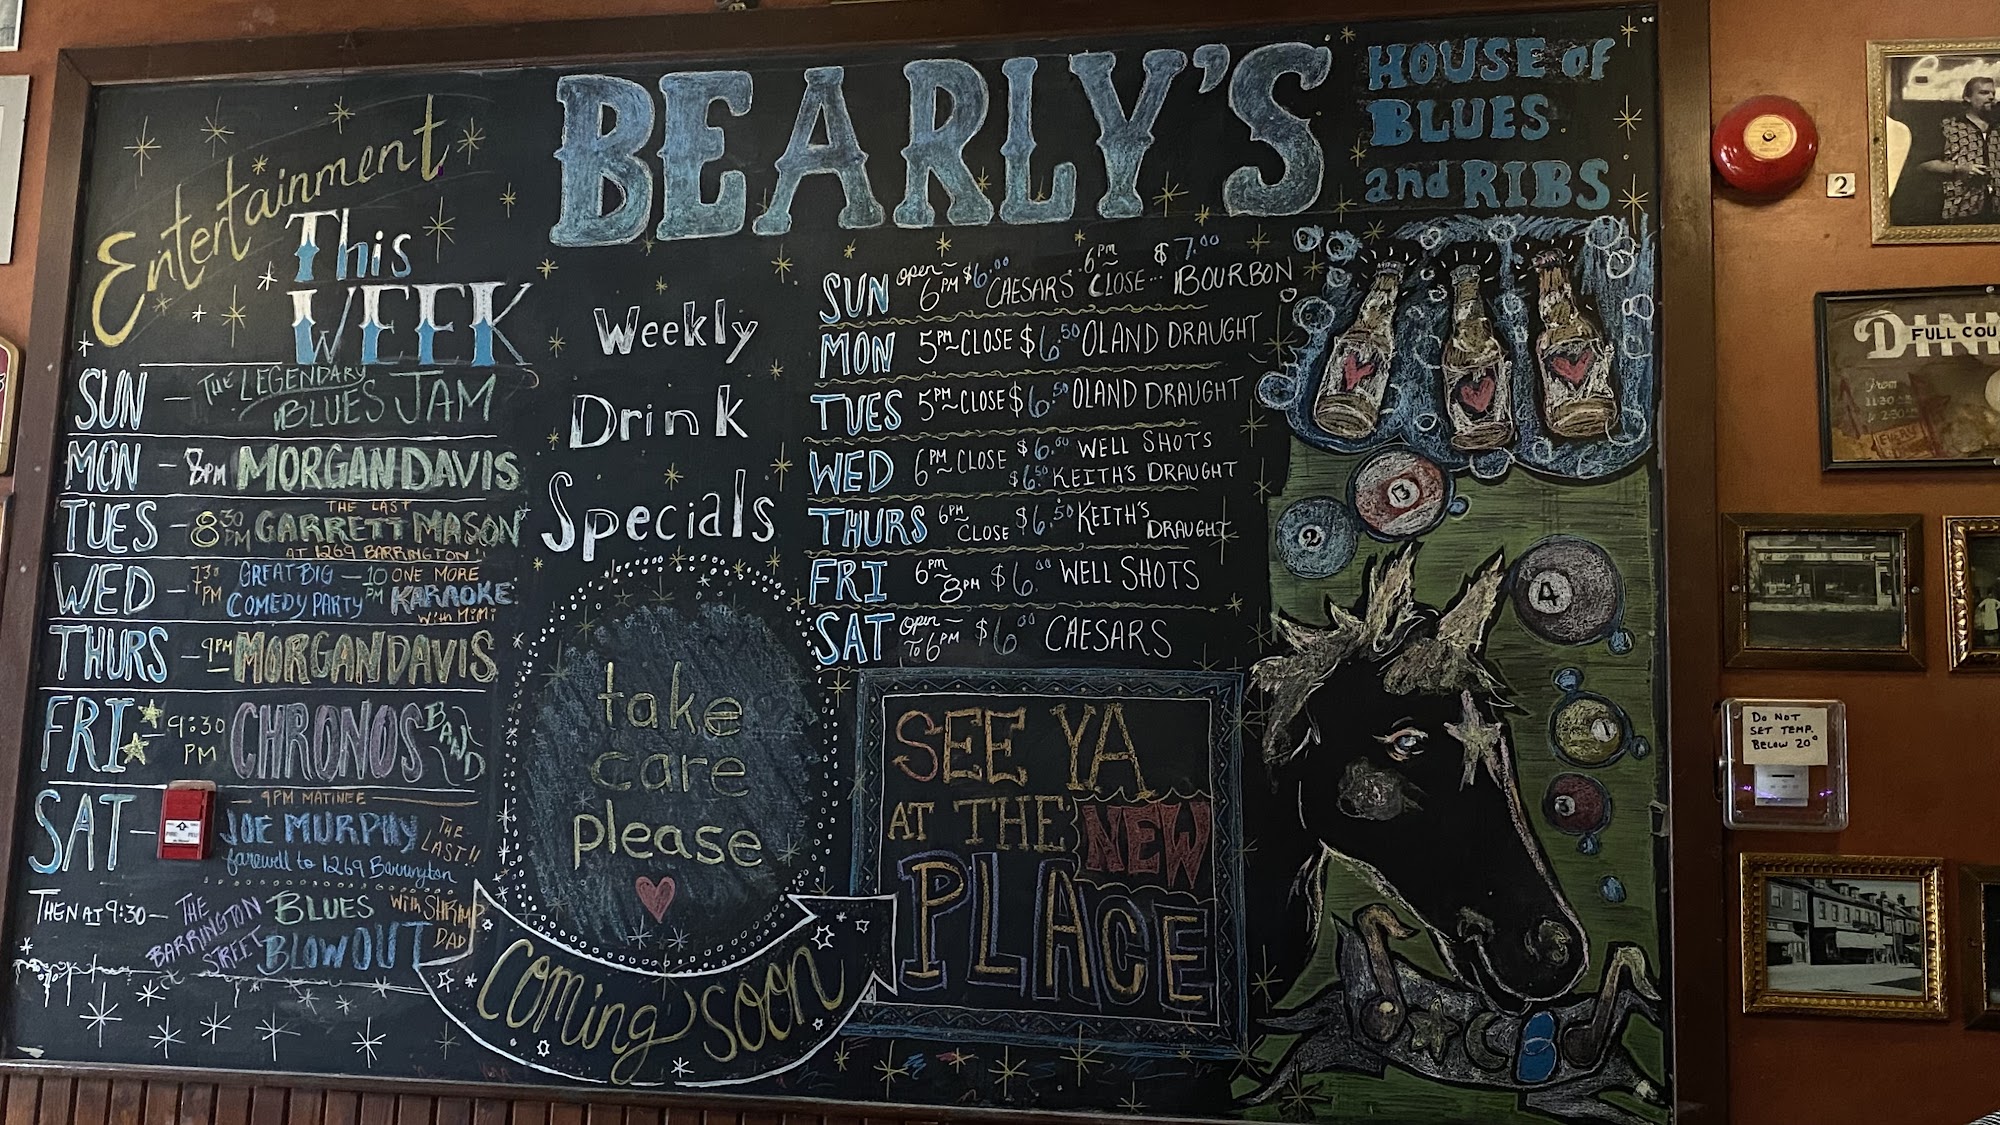 BEARLY'S
HOUSE of
BLUES
and RIBS
Entertainment
This
WEEK
SUN — THE LEGENDARY
BLUES JAM
MON — 8PM MORGAN DAVIS
TUES — 8 30 PM THE LAST
GARRETT MASON
AT 1269 BARRINGTON!!
WED — 7 30 PM GREAT BIG
COMEDY PARTY
— 10 PM ONE MORE
KARAOKE
with MiMi
THURS — 9PM MORGAN DAVIS
FRI — 9:30 PM CHRONOS BAND
SAT — 4PM MATINEE
JOE MURPHY THE LAST!!
farewell to 1269 Barrington
THEN AT 9:30 — THE
BARRINGTON
STREET
BLUES
BLOWOUT
with SHRIMP
DAD
Weekly
Drink
Specials
SUN open ~ 6PM $6.00 CAESARS .. 6PM CLOSE... $7.00 BOURBON
MON 5PM~CLOSE $6.50 OLAND DRAUGHT
TUES 5PM~CLOSE $6.50 OLAND DRAUGHT
WED 6PM~CLOSE $6.00 WELL SHOTS
$6.50 KEITH'S DRAUGHT
THURS 6PM~CLOSE $6.50 KEITH'S DRAUGHT
FRI 6PM~8PM $6.00 WELL SHOTS
SAT Open~ To 6PM $6.00 CAESARS
take
care
please
Coming Soon
SEE YA
AT THE NEW
PLACE
13
2
4
1
3
2
DINN
FULL COU
From
11:30
DO NOT
SET TEMP.
BELOW 20°